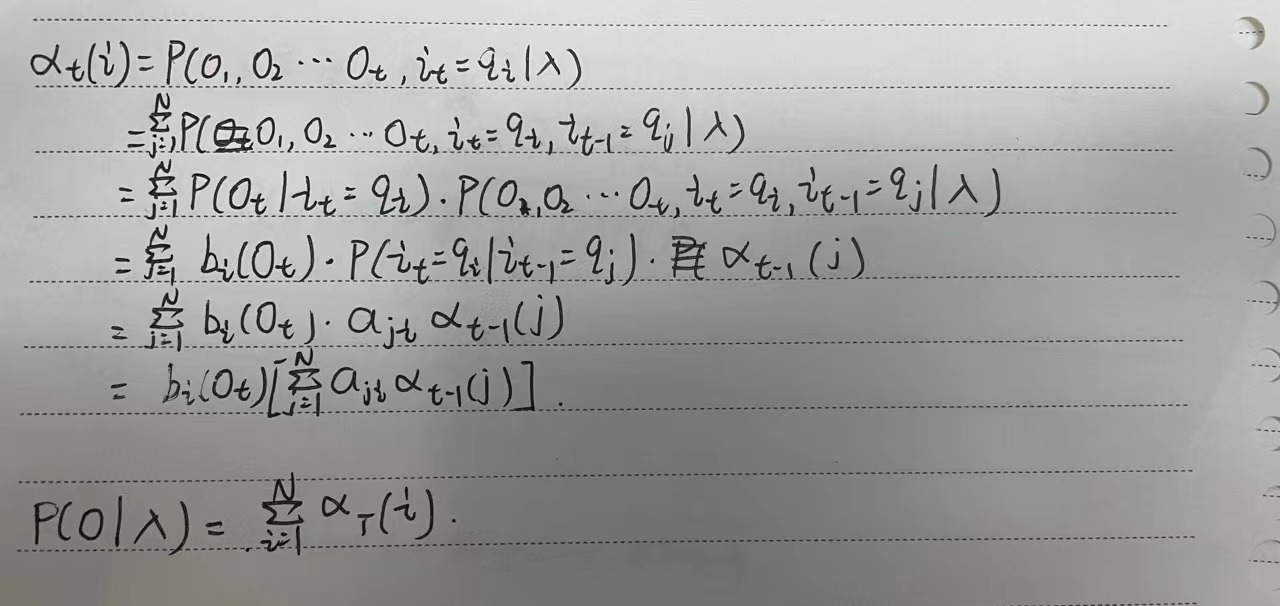 α_t(i) = P(O_1, O_2 ⋯ O_t, i_t = q_i | λ)
= Σ_{j=1}^{N} P(O_1, O_2 ⋯ O_t, i_t = q_i, i_{t-1} = q_j | λ)
= Σ_{j=1}^{N} P(O_t | i_t = q_i) · P(O_1, O_2 ⋯ O_t, i_t = q_i, i_{t-1} = q_j | λ)
= Σ_{j=1}^{N} b_i(O_t) · P(i_t = q_i | i_{t-1} = q_j) · α_{t-1}(j)
= Σ_{j=1}^{N} b_i(O_t) · a_{ji} α_{t-1}(j)
= b_i(O_t) [Σ_{j=1}^{N} a_{ji} α_{t-1}(j)].
P(O | λ) = Σ_{i=1}^{N} α_T(i).